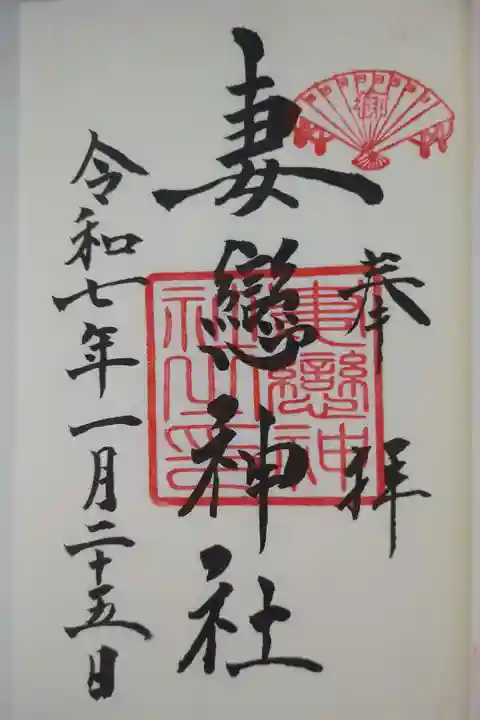 奉拝
妻戀神社
令和七年一月二十五日
妻戀神
社之印